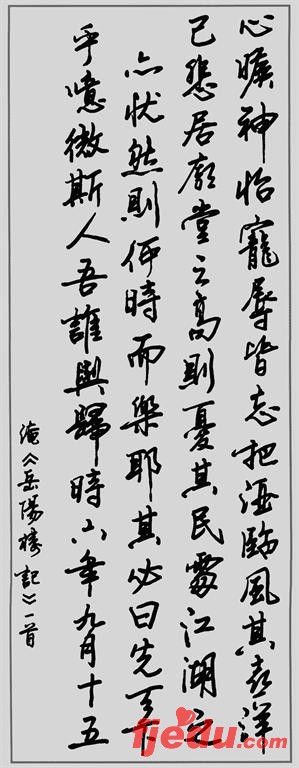 心曠神怡寵辱皆忘把酒臨風其喜洋
己悲居廟堂之高則憂其民處江湖之
亦忧然則何時而樂耶其必曰先天下
乎噫微斯人吾誰與歸時六年九月十五
淹《岳陽樓記》一首
fjedu.com